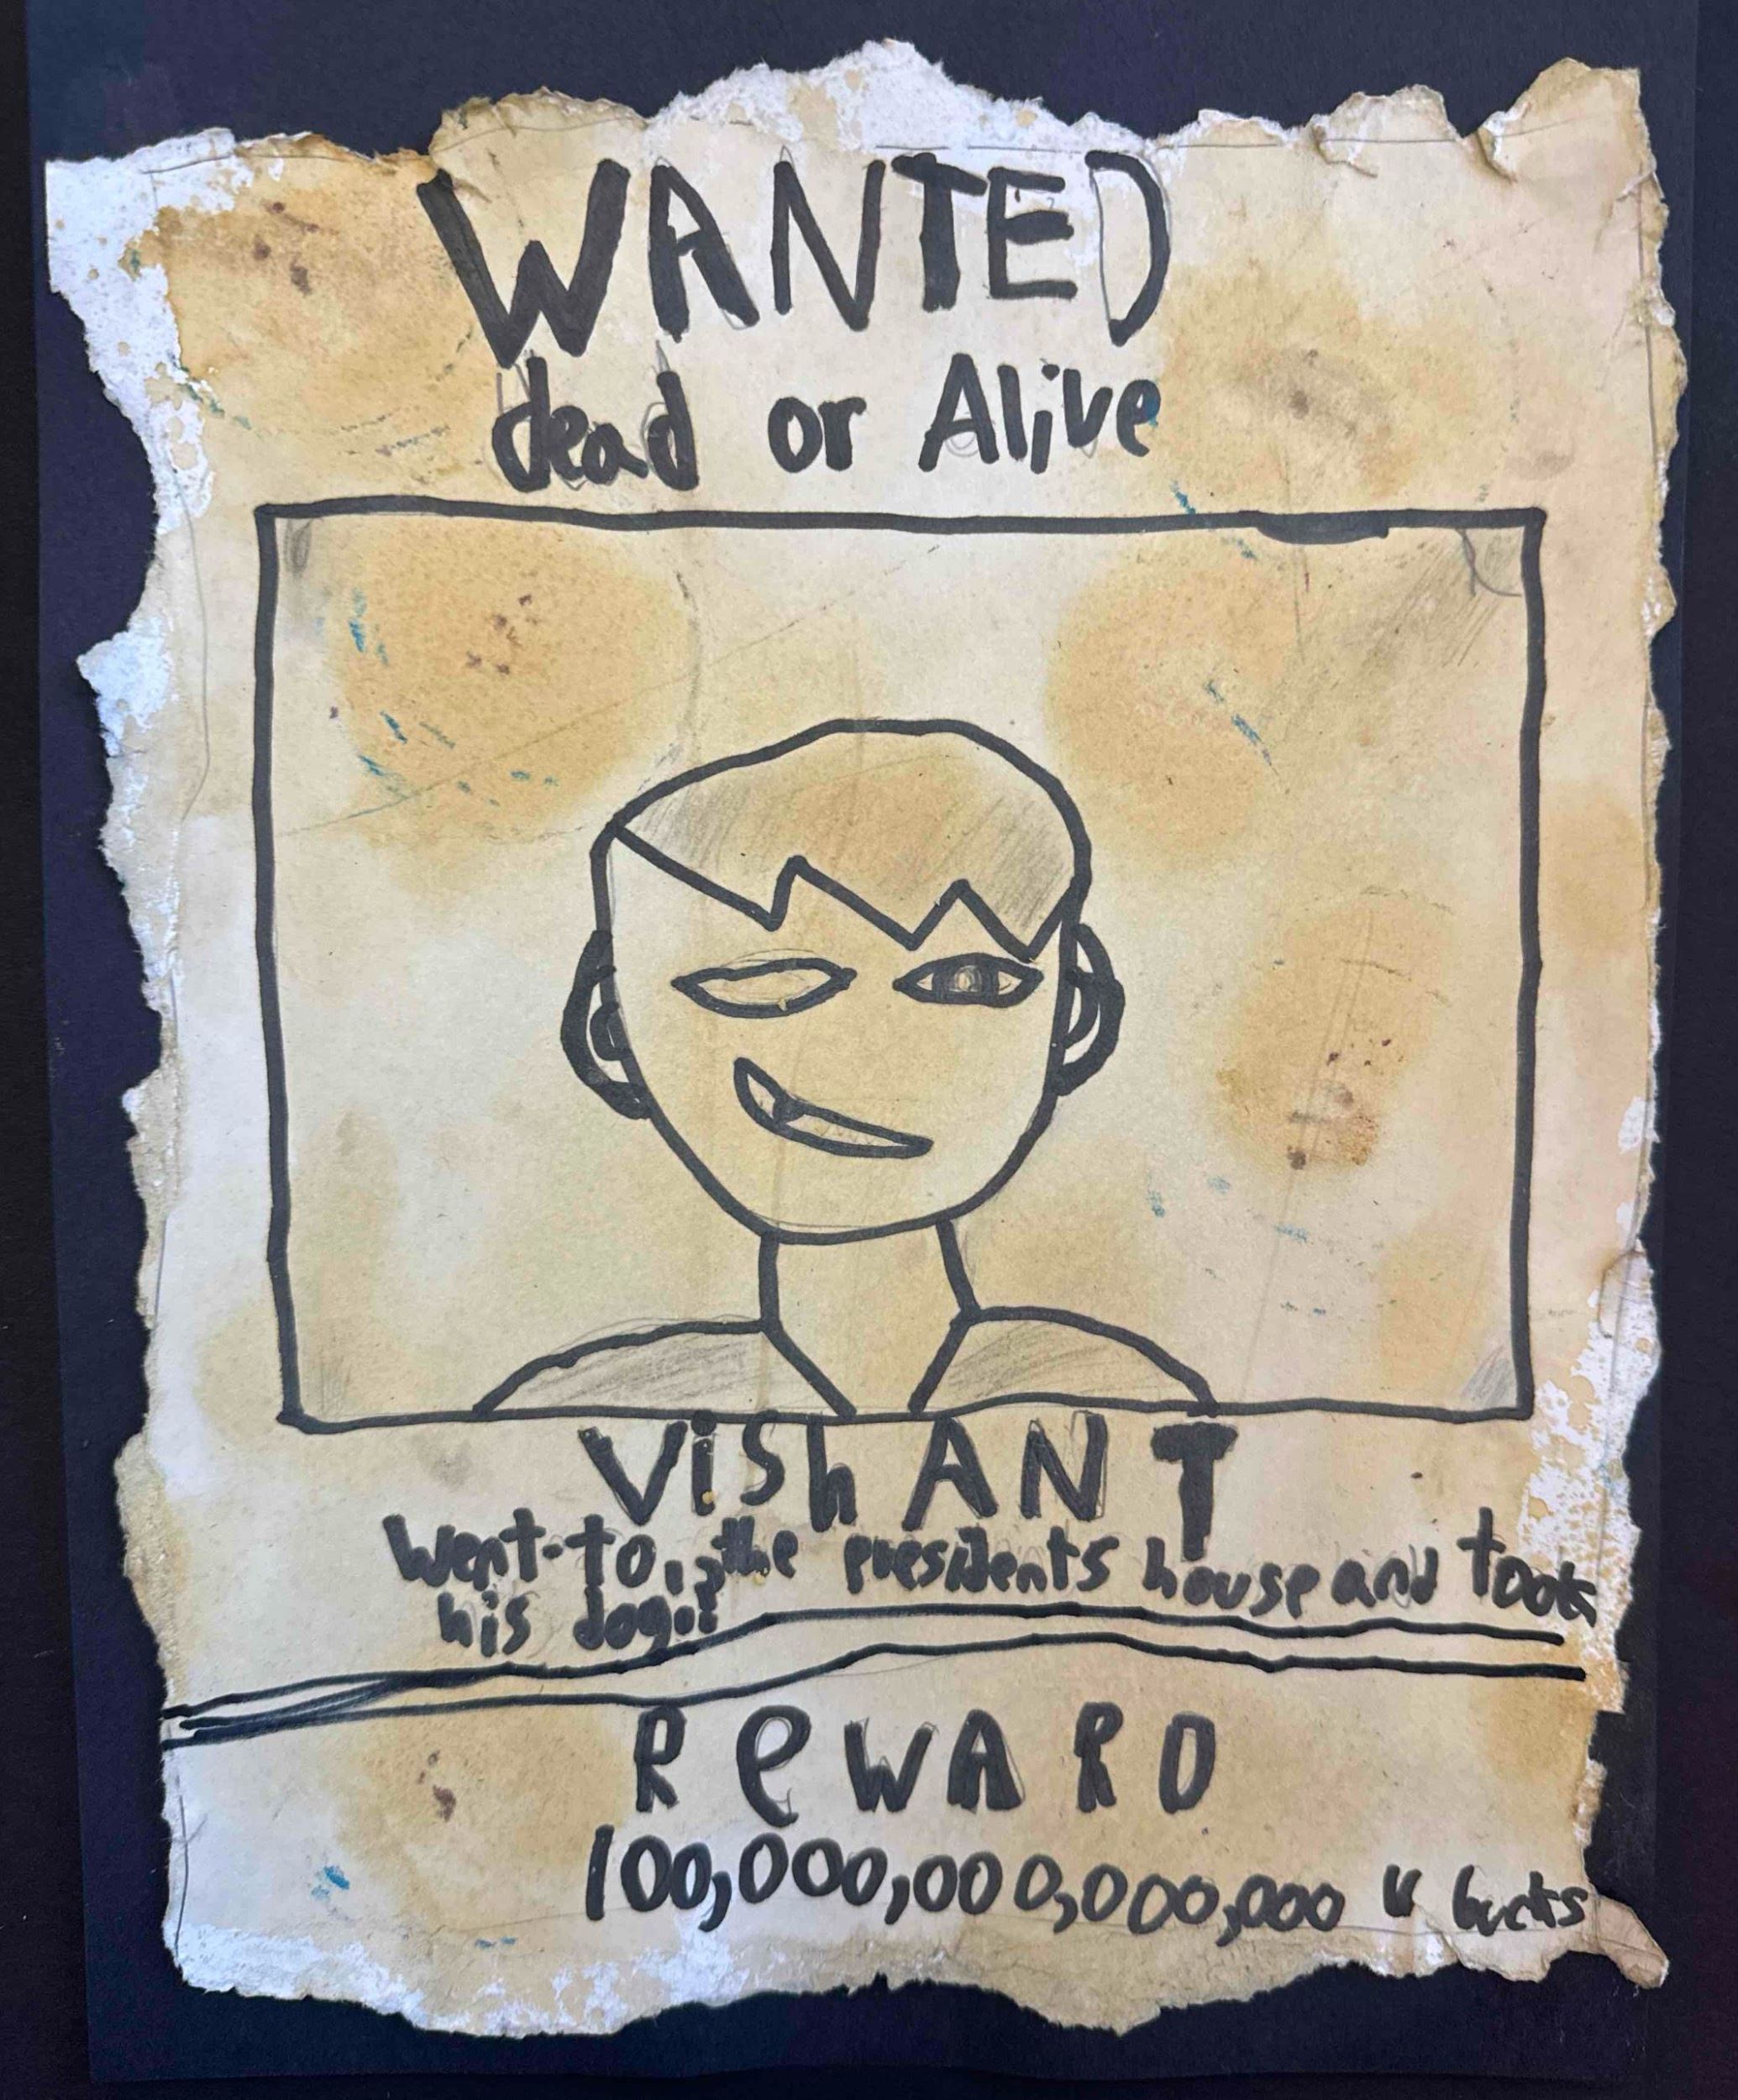 WANTED
dead or Alive
VishANT
Went to, the presidents house and took
his dog!!
ReWARD
100,000,000,000,000 V bucks